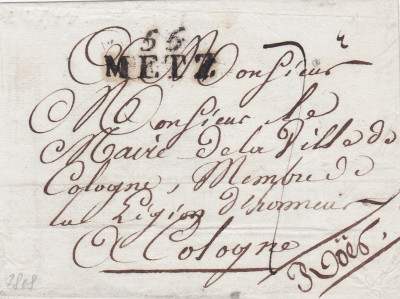 55
METZ
Monsieur
Monsieur le
Maire de la Ville de
Cologne, Membre de
la Légion d'honneur
à Cologne
1808